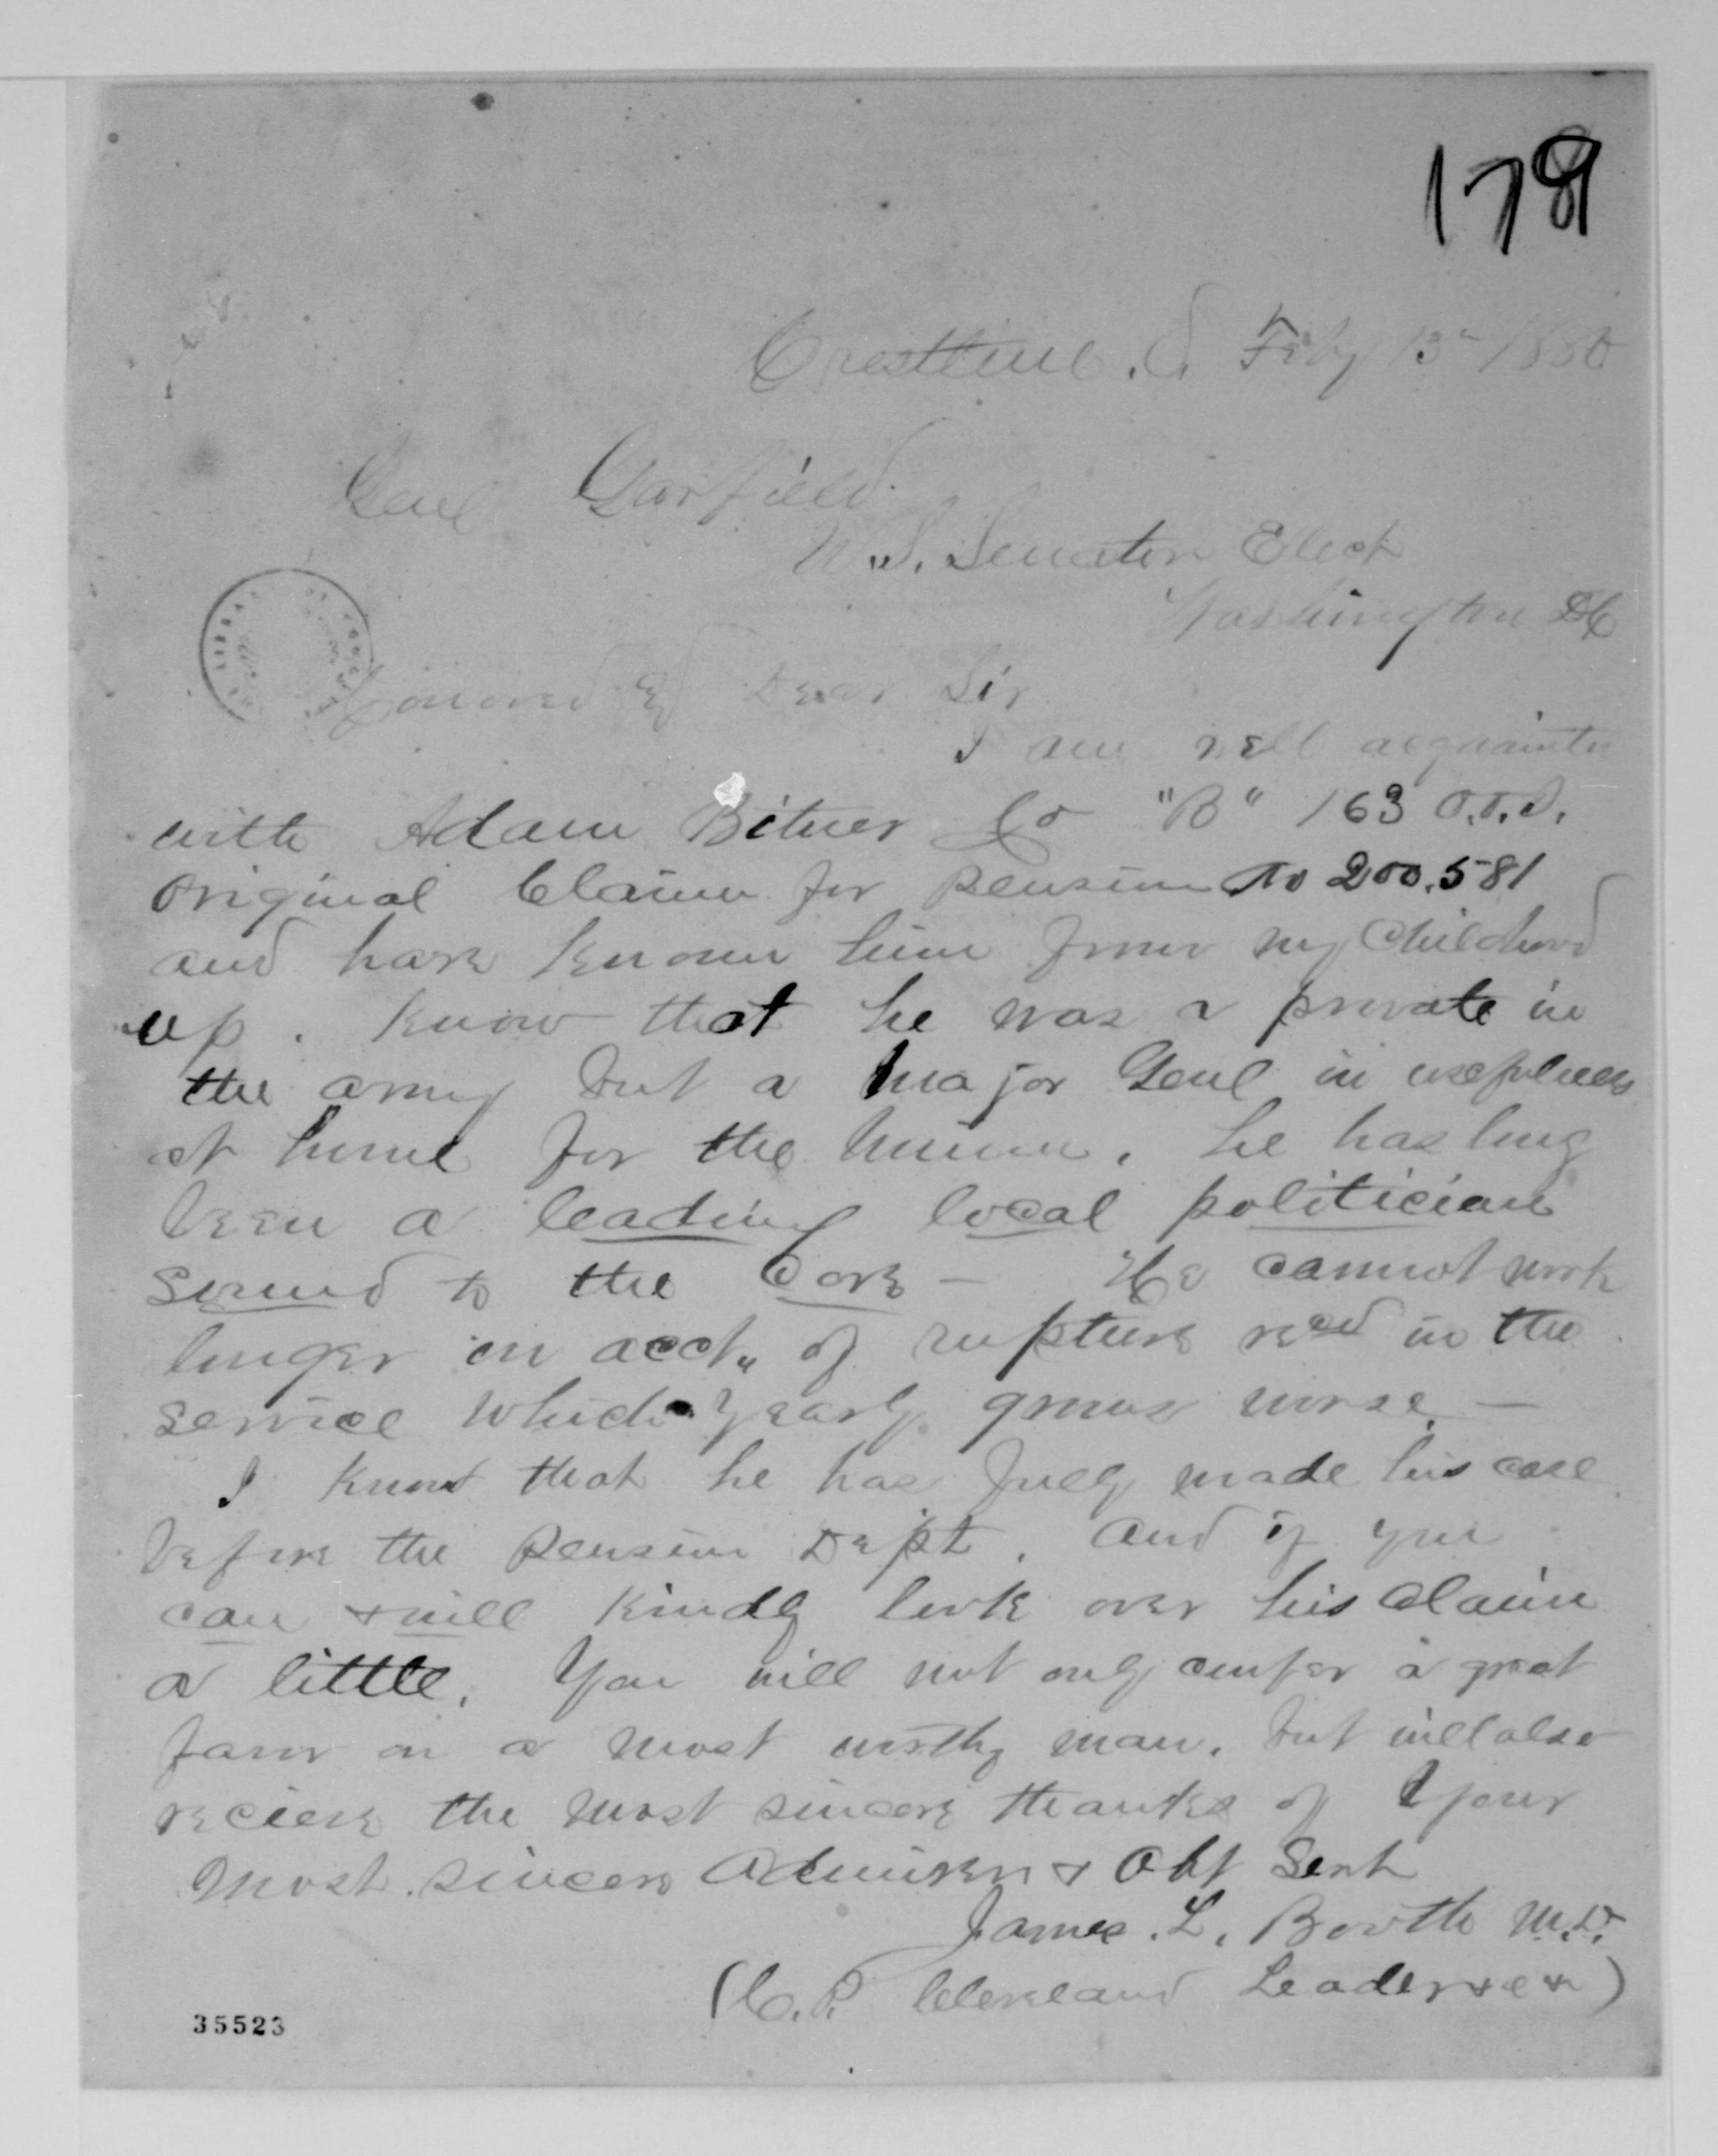 178
Crestline. O. Feby 13" 1880
Genl Garfield.
U.S. Senator Elect
Washington DC
Honored & Dear Sir
I am well acquainted
with Adam Bitner Co "B" 163 O.V.I.
Original Claim for Pension No 200.581
and have known him from my Childhood
up. Know that he was a private in
the army but a Major Genl in usefulness
at home for the Union. he has long
been a leading local politician
Sound to the Core — He cannot work
longer on acct„ of rupture recd in the
service which yearly grows worse. —
I know that he has fully made his case
before the Pension Dept. And if you
can & will kindly look over his claim
a little. You will not only confer a great
favor on a most worthy man. but will also
recieve the most sincere thanks of Your
Most. sincere Admirer & Obt Servt
James. L. Booth M.D.
(C.P. Cleveland Leader &c &)
35523